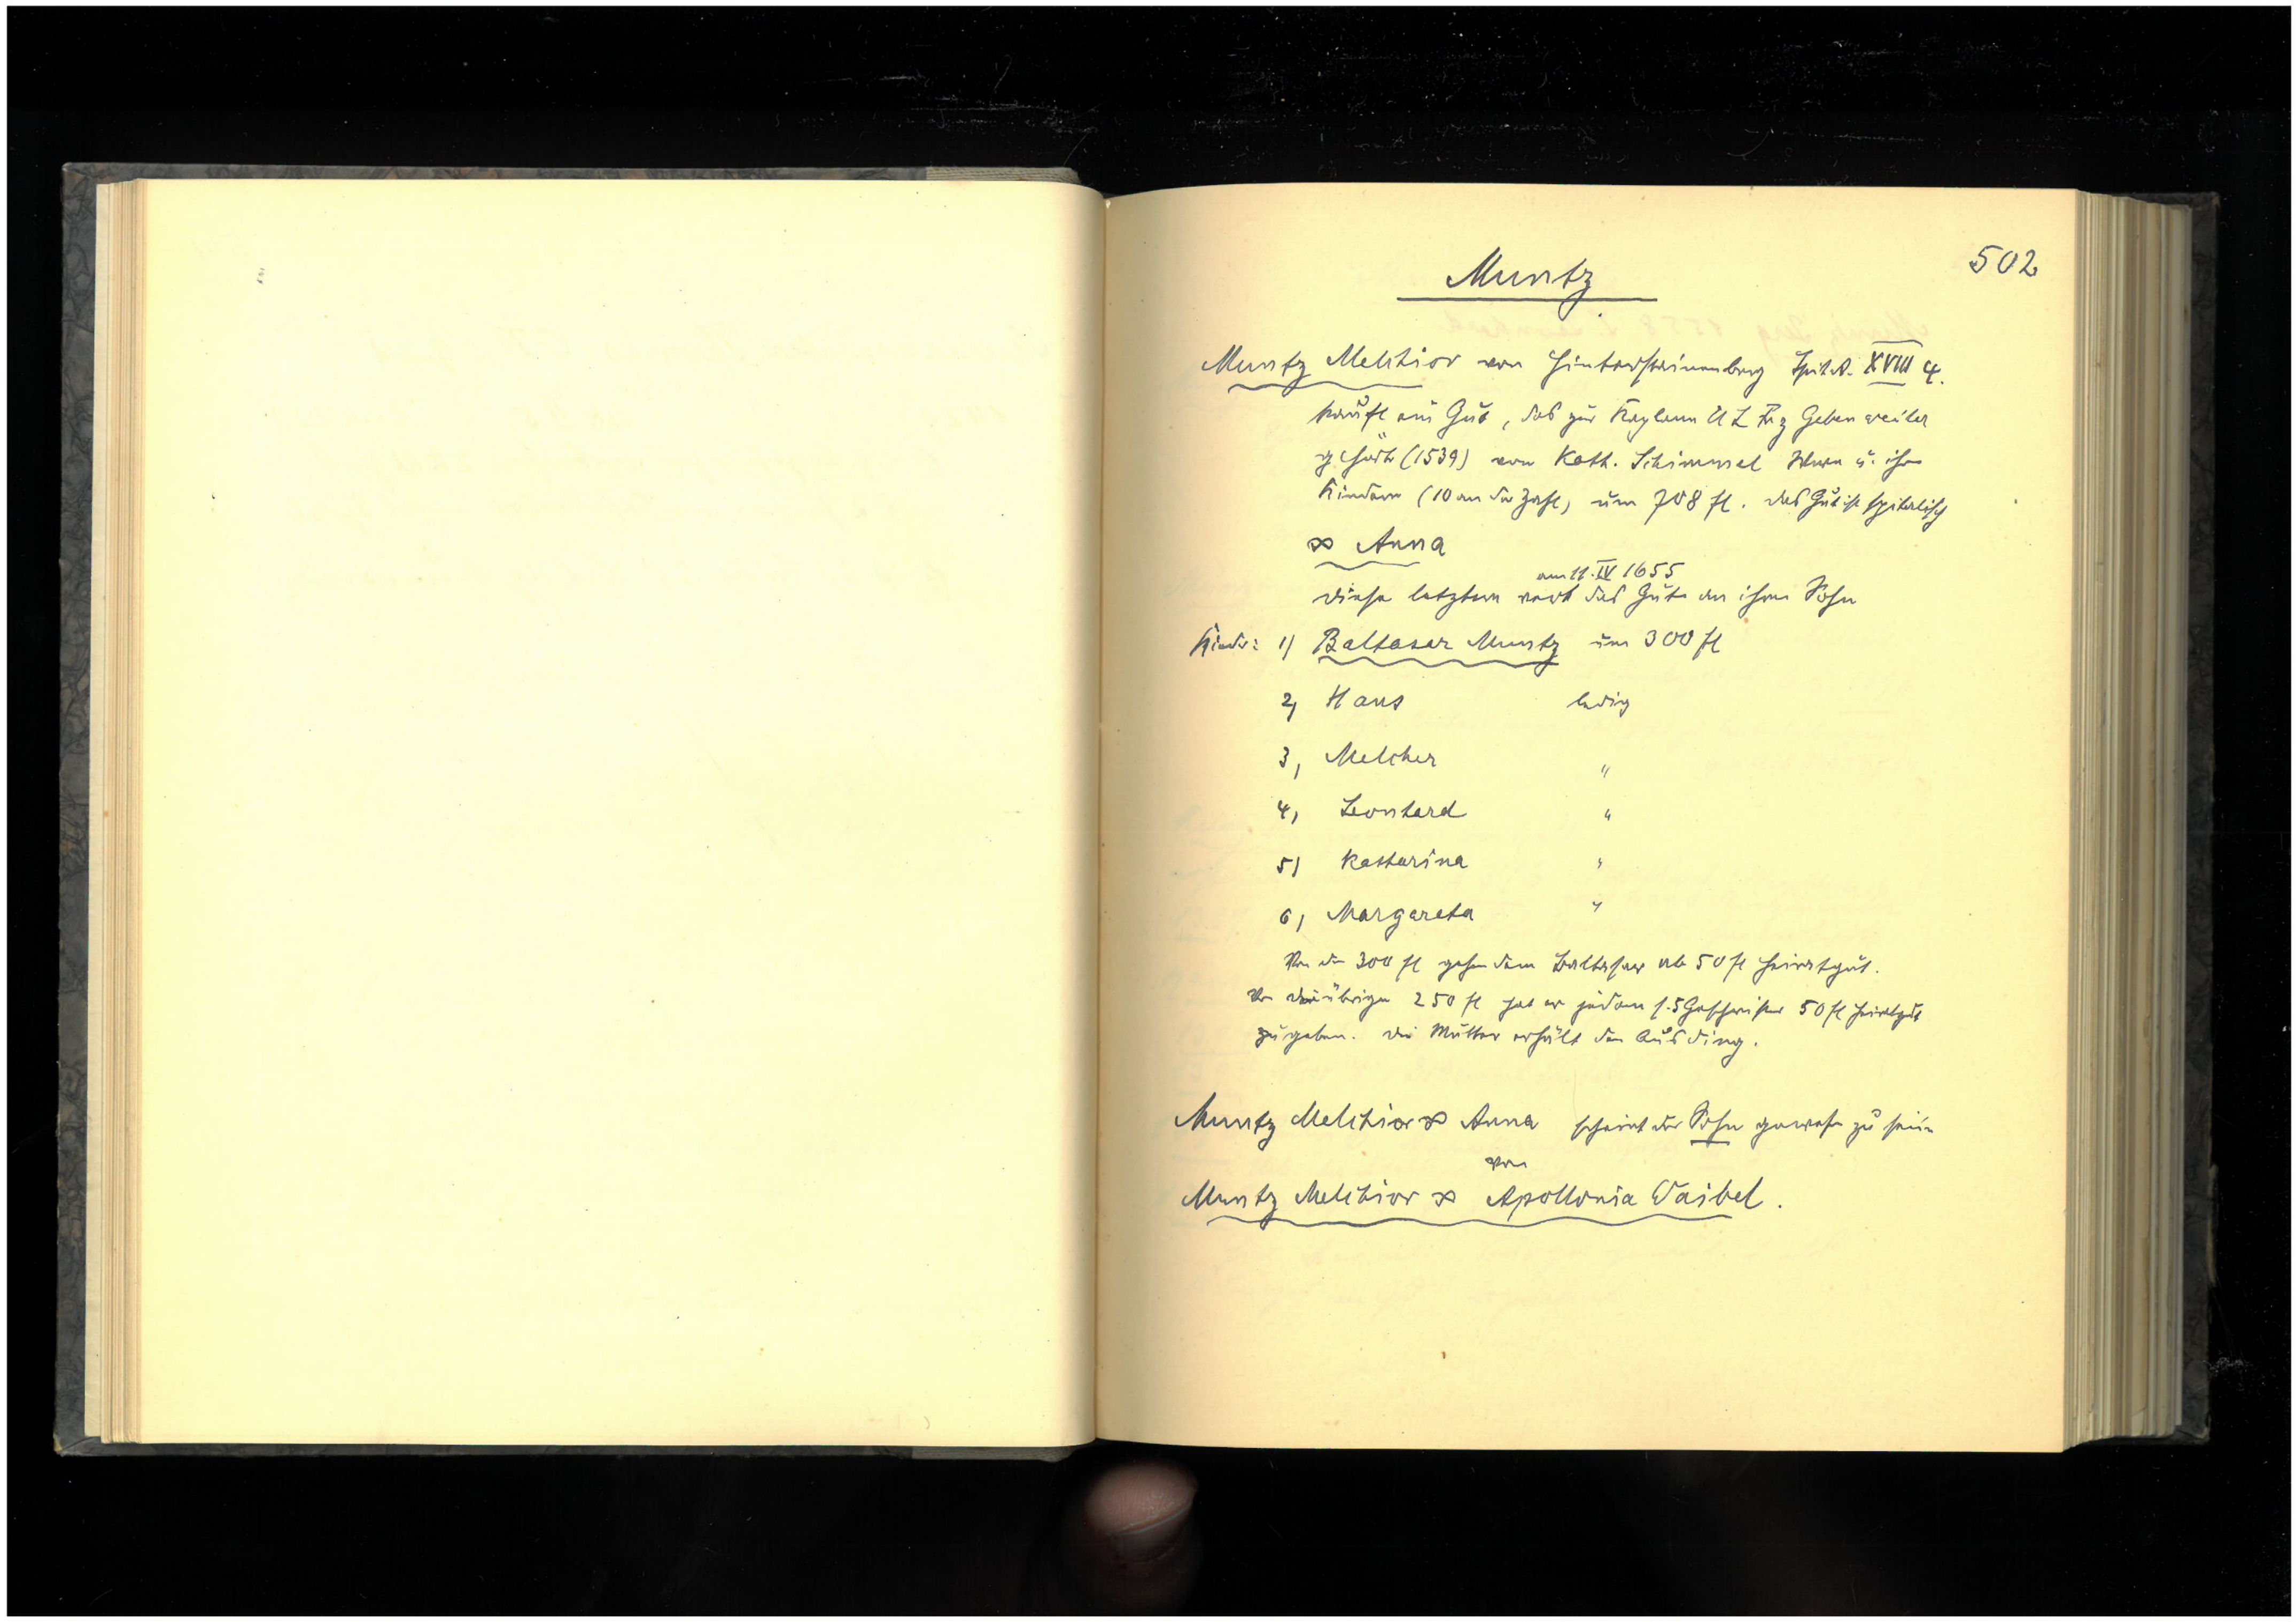 502
Muntz
Muntz Melchior von Hintersteinenberg Spit. A. XVIII 4.
kauft ein Gut, das zur Kaplanei U L Fr z Gebenweiler
gehört (1539) von Kath. Schimmel Wwe u. ihren
Kindern (10 an der Zahl) um 708 fl. das Gut ist spitalisch
∞ Anna
am 11. IV 1655
diese letztere das Gut an ihren Sohn
Kinder: 1) Baltasar Muntz um 300 fl
2) Hans ledig
3) Melcher "
4) Leonhard "
5) Katharina "
6) Margareta "
Von den 300 fl gehen dem Balthasar ab 50 fl Heiratgut.
Von den übrigen 250 fl hat er jedem s. 5 Geschwister 50 fl Heiratgut
zu geben. die Mutter erhält den Ausding.
Muntz Melchior ∞ Anna scheint der Sohn gewesen zu sein
von
Muntz Melchior ∞ Apollonia Waibel.